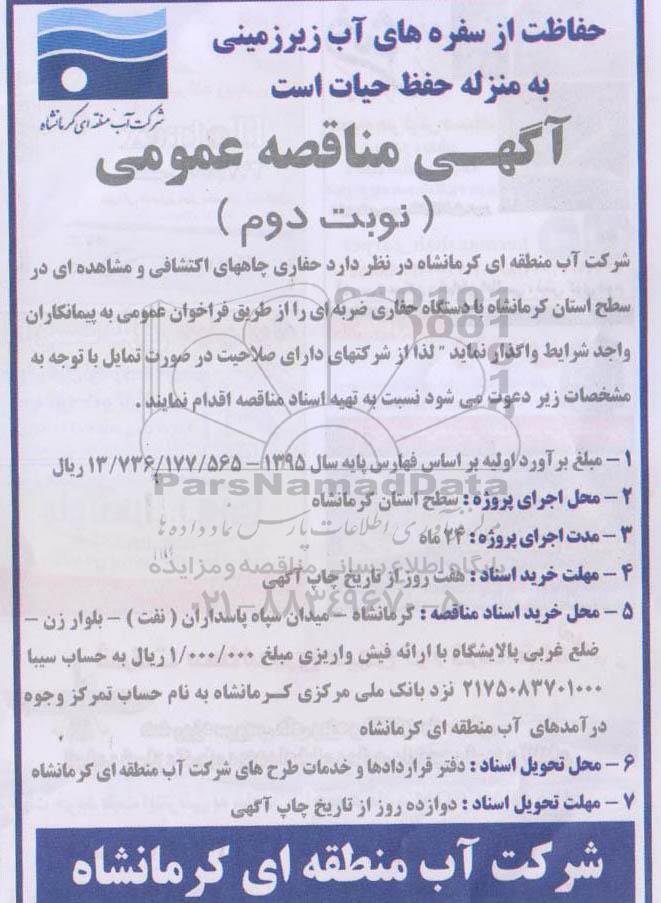 حفاظت از سفره های آب زیرزمینی
به منزله حفظ حیات است
شرکت آب منطقه ای کرمانشاه
آگهی مناقصه عمومی
( نوبت دوم )
شرکت آب منطقه ای کرمانشاه در نظر دارد حفاری چاههای اکتشافی و مشاهده ای در
سطح استان کرمانشاه با دستگاه حفاری ضربه ای را از طریق فراخوان عمومی به پیمانکاران
واجد شرایط واگذار نماید " لذا از شرکتهای دارای صلاحیت در صورت تمایل با توجه به
مشخصات زیر دعوت می شود نسبت به تهیه اسناد مناقصه اقدام نمایند .
۱- مبلغ برآورد اولیه بر اساس فهارس پایه سال ۱۳۹۵- ۱۳/۷۳۶/۱۷۷/۵۶۵ ریال
ParsNamadData
۲- محل اجرای پروژه : سطح استان کرمانشاه
مرکز فرآوری اطلاعات پارس نماد داده ها
۳- مدت اجرای پروژه : ۲۴ ماه
پایگاه اطلاع رسانی مناقصه و مزایده
۴- مهلت خرید اسناد : هفت روز از تاریخ چاپ آگهی
۰۲۱-۸۸۳۴۹۶۷۰-۵
۵- محل خرید اسناد مناقصه : کرمانشاه - میدان سپاه پاسداران ( نفت ) - بلوار زن -
ضلع غربی پالایشگاه با ارائه فیش واریزی مبلغ ۱/۰۰۰/۰۰۰ ریال به حساب سیبا
۲۱۷۵۰۸۳۷۰۱۰۰۰ نزد بانک ملی مرکزی کرمانشاه به نام حساب تمرکز وجوه
درآمدهای آب منطقه ای کرمانشاه
۶- محل تحویل اسناد : دفتر قراردادها و خدمات طرح های شرکت آب منطقه ای کرمانشاه
۷- مهلت تحویل اسناد : دوازده روز از تاریخ چاپ آگهی
شرکت آب منطقه ای کرمانشاه